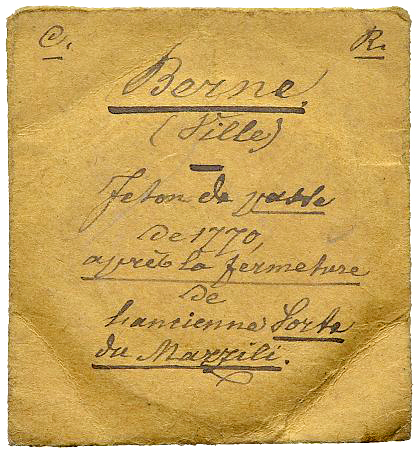 C. R.
Berne,
(Ville)
Jeton de passe
de 1770,
après la fermeture
de
l'ancienne Porte
du Marzili.